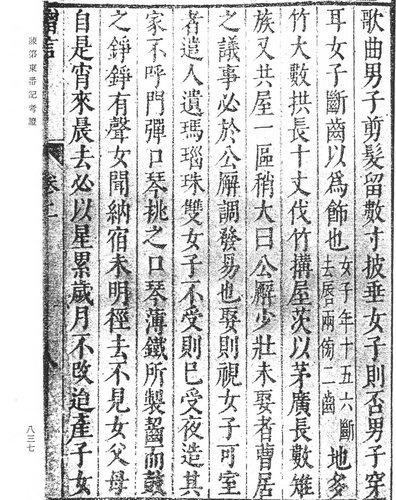 歌曲男子剪髮留數寸披垂女子則否男子穿
耳女子斷齒以爲飾也女子年十五六斷去唇兩傍二齒地多
竹大數拱長十丈伐竹搆屋茨以茅廣長數雉
族又共屋一區稍大曰公廨少壯未娶者曹居
之議事必於公廨調發易也娶則視女子可室
者遣人遺瑪瑙珠雙女子不受則已受夜造其
家不呼門彈口琴挑之口琴薄鐵所製齧而鼓
之錚錚有聲女聞納宿未明徑去不見女父母
自是宵來晨去必以星累歲月不改迨產子女
卷二
陳第東番記考證
八三七